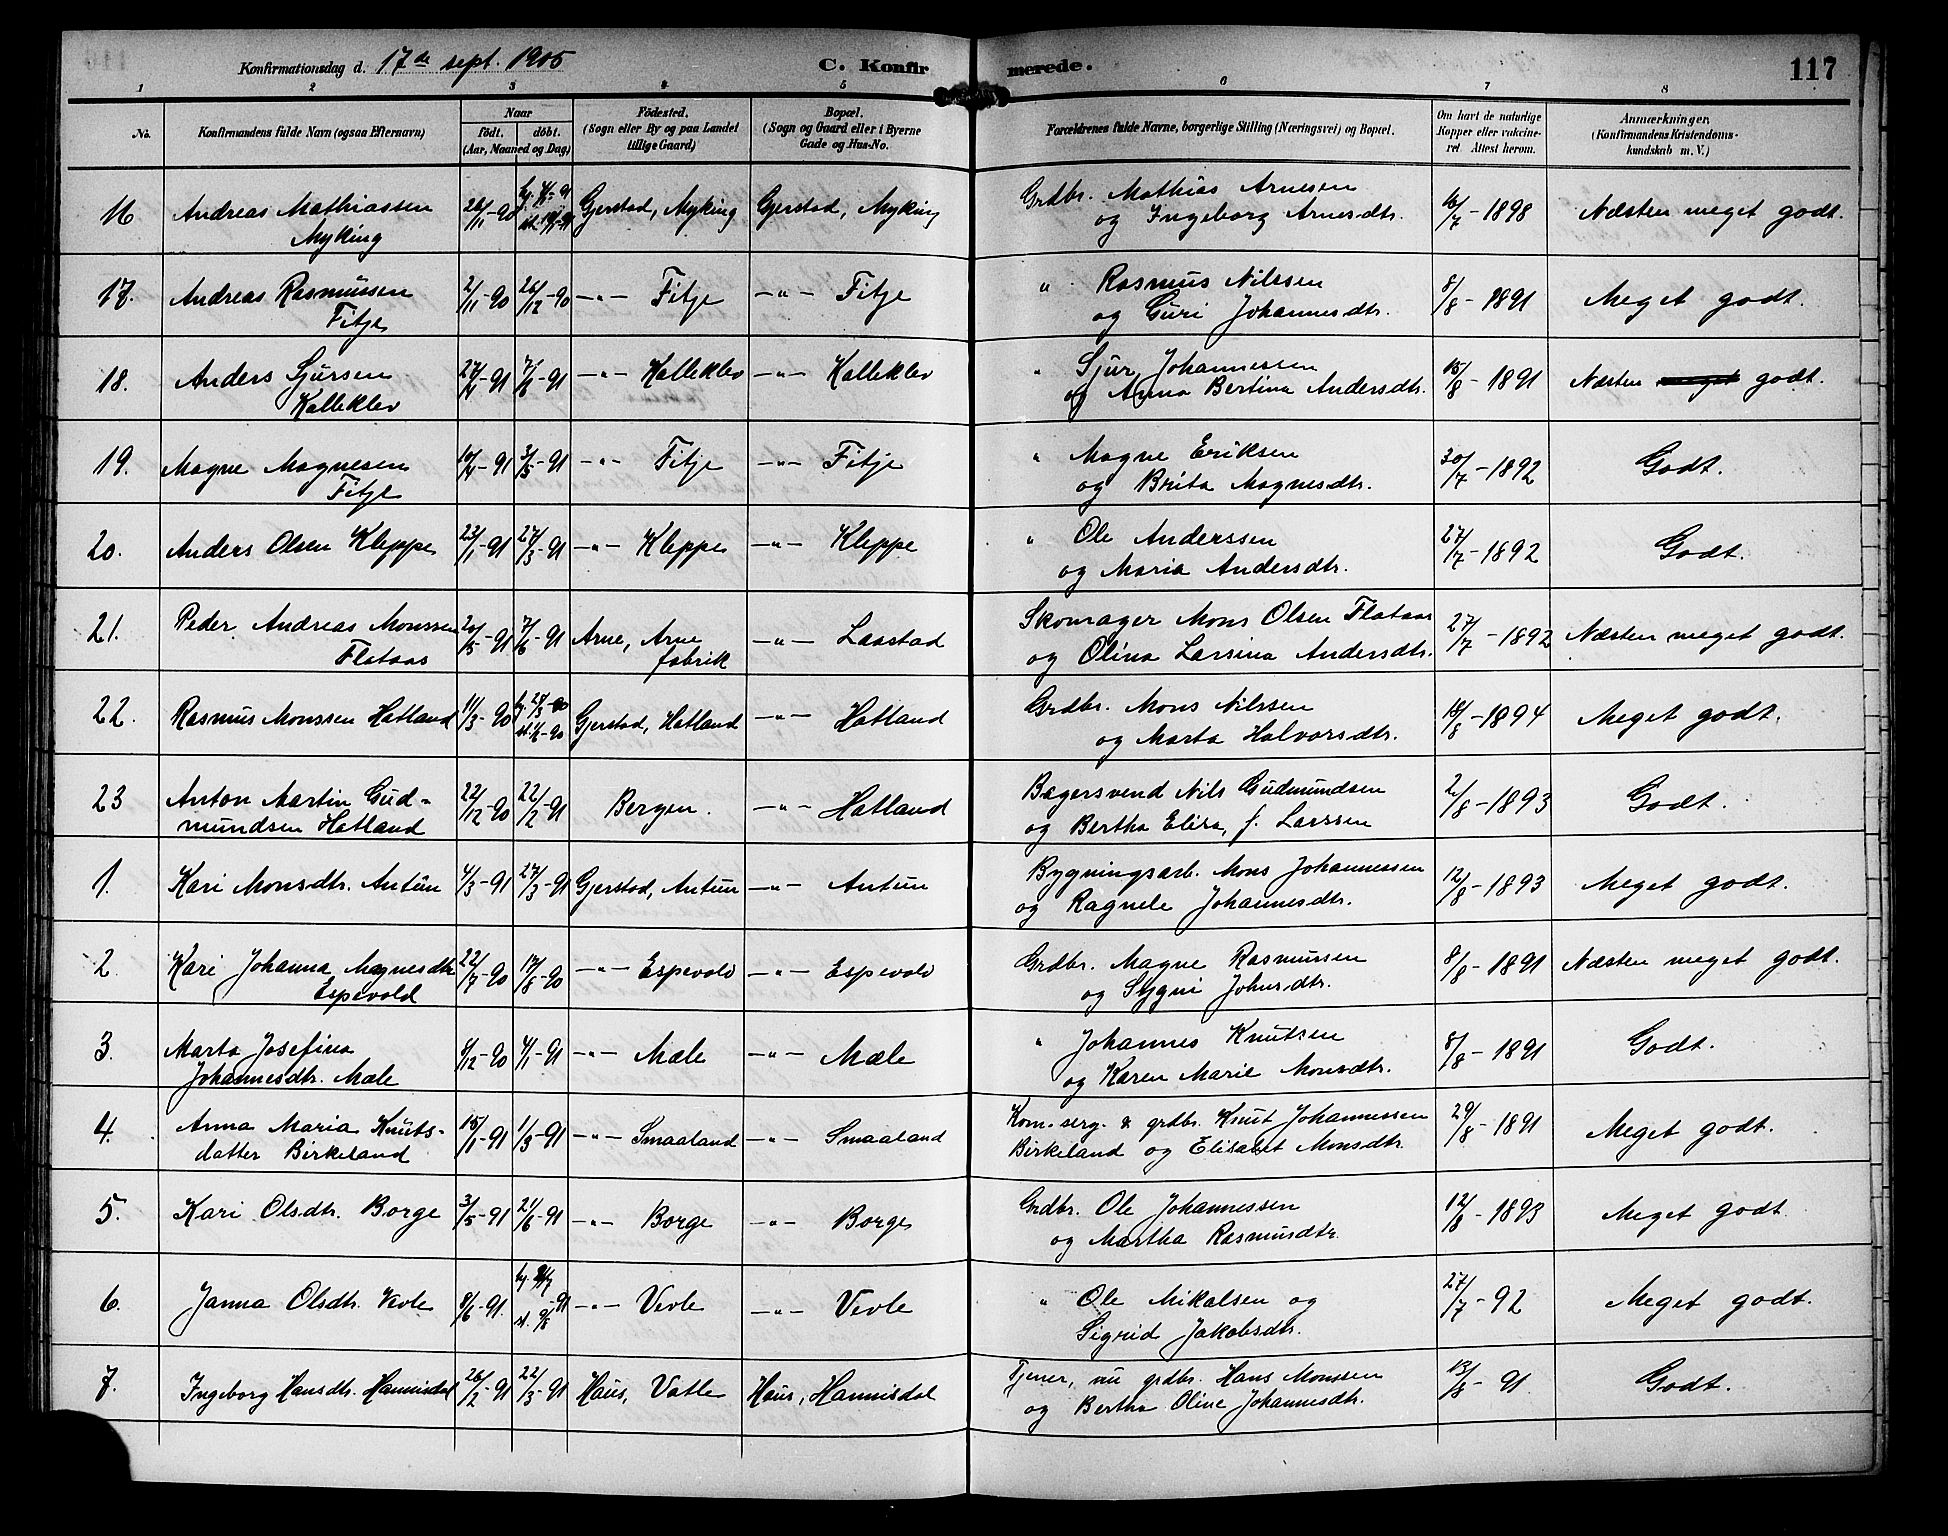 Konfirmationsdag d. 17de sept. 1905
C. Konfirmerede.
117
1 2 3 4 5 6 7 8
No.
Konfirmandens fulde Navn (ogsaa Efternavn)
Naar
født. døbt.
(Aar, Maaned og Dag)
Fødested.
(Sogn eller By og paa Landet
tillige Gaard)
Bopæl.
(Sogn og Gaard eller i Byerne
Gade og Hus-No.
Forældrenes fulde Navne, borgerlige Stilling (Næringsvei) og Bopæl.
Om havt de naturlige
Kopper eller vakcine-
ret Attest herom.
Anmærkninger.
(Konfirmandens Kristendoms-
kundskab m. V.)
16 Andreas Mathiassen Gjerstad, Myking Gjerstad, Myking Grdbr. Mathias Arnesen 16/7-1898 Næsten meget godt.
Myking og Ingeborg Arnesdtr.
17. Andreas Rasmussen 2/11-90 26/12-90 -"- Fitje -"- Fitje " Rasmus Nilssen 8/8-1891 Meget godt.
Fitje og Guri Johannesdtr.
18. Anders Sjursen 27/4-91 7/6-91 -"- Kalleklev -"- Kalleklev " Sjur Johannessen 15/8-1891 Næsten meget godt.
Kalleklev og Anna Bertina Andersdtr.
19. Magne Magnesen 10/4-91 3/5-91 -"- Fitje -"- Fitje " Magne Eriksen 30/7-1892 Godt.
Fitje og Brita Magnesdtr.
20. Anders Olsen Kleppe 23/1-91 27/3-91 -"- Kleppe -"- Kleppe " Ole Anderssen 27/7-1892 Godt.
og Maria Andersdtr.
21. Peder Andreas Monssen 20/5-91 7/6-91 Arne, Arne -"- Laastad Skomager Mons Olsen Flataas 27/7-1892 Næsten meget godt.
Flataas fabrik og Olina Larsina Andersdtr.
22. Rasmus Monssen Hatland 11/3-90 hj. 27/3-90 Gjerstad, Hatland -"- Hatland Grdbr. Mons Nilssen 18/8-1894 Meget godt.
og Marta Halvorsdtr.
23 Anton Martin Gud- 22/12-90 22/2-91 Bergen. -"- Hatland Bagersvend Nils Gudmundsen 2/8-1893 Godt.
mundsen Hatland og Bertha Elisa, f. Larssen
1. Kari Monsdtr. Antun 4/3-91 27/3-91 Gjerstad, Antun -"- Antun Bygningsarb. Mons Johannessen 12/8-1893 Meget godt.
og Ragnele Johannesdtr.
2. Kari Johanna Magnesdtr 22/7-90 17/8-90 -"- Espevold -"- Espevold Grdbr. Magne Rasmussen 8/8-1891 Næsten meget godt.
Espevold og Sygni Johnsdtr.
3. Marta Josefina 4/12-90 4/1-91 -"- Mæle -"- Mæle " Johannes Knutsen 8/8-1891 Godt.
Johannesdtr. Mæle og Karen Marie Monsdtr.
4. Anna Maria Knuts- 15/1-91 1/3-91 -"- Smaaland -"- Smaaland Kom. serg. & grdbr. Knut Johannessen 29/8-1891 Meget godt.
datter Birkeland Birkeland og Elisabet Monsdtr.
5. Kari Olsdtr. Borge 3/5-91 21/6-91 -"- Borge -"- Borge Grdbr. Ole Johannessen 12/8-1893 Meget godt.
og Martha Rasmusdtr.
6. Janna Olsdtr. Vevle 8/6-91. -"- Vevle -"- Vevle " Ole Mikalsen og 27/7-92 Meget godt.
Sigrid Jakobsdtr.
7. Ingeborg Hansdtr. Hannisdal 26/2-91 22/3-91 Haus, Vatle Haus, Hannisdal Tjener, nu grdbr. Hans Monssen 13/8-91. Godt.
og Bertha Oline Johannesdtr.